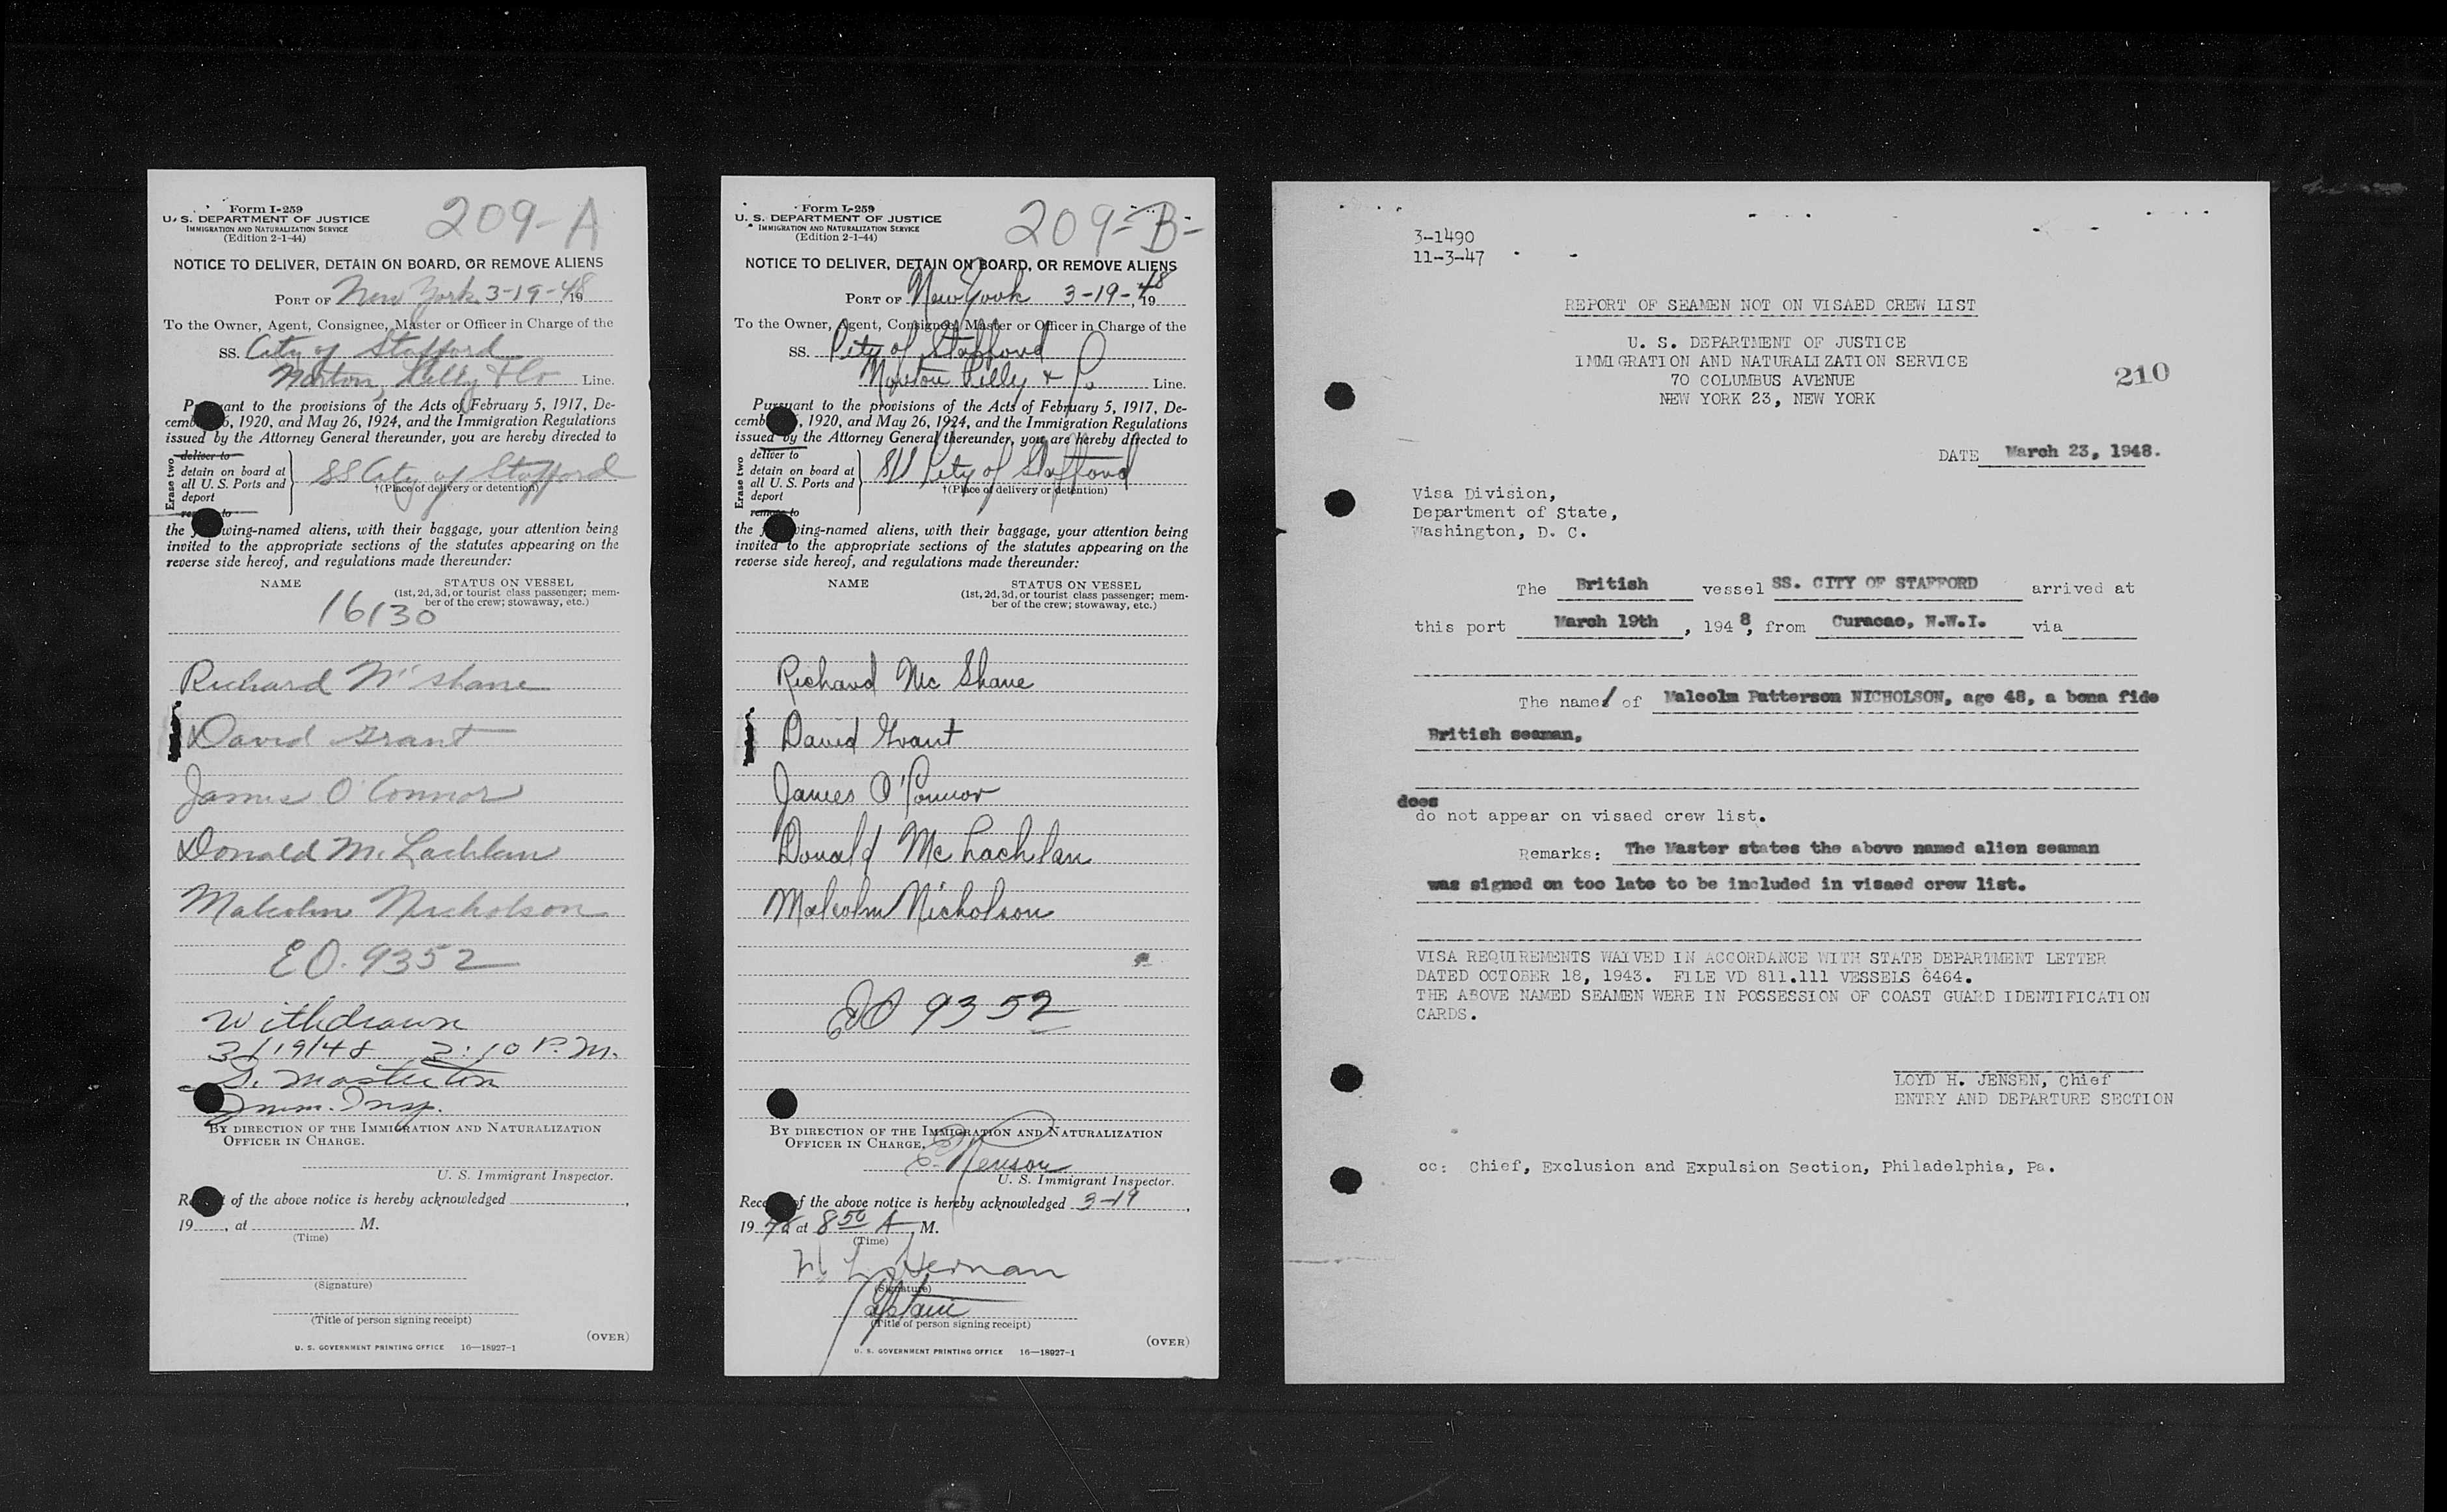 Form I-259
U. S. DEPARTMENT OF JUSTICE
IMMIGRATION AND NATURALIZATION SERVICE
(Edition 2-1-44)
209-A
NOTICE TO DELIVER, DETAIN ON BOARD, OR REMOVE ALIENS
PORT OF New York 3-19-48 19
To the Owner, Agent, Consignee, Master or Officer in Charge of the
SS. City of Stafford
Norton, Lilly & Co Line.
Pursuant to the provisions of the Acts of February 5, 1917, De-
cember 26, 1920, and May 26, 1924, and the Immigration Regulations
issued by the Attorney General thereunder, you are hereby directed to
Erase two
deliver to
detain on board at
all U. S. Ports and
deport
remove to
SS City of Stafford
†(Place of delivery or detention)
the following-named aliens, with their baggage, your attention being
invited to the appropriate sections of the statutes appearing on the
reverse side hereof, and regulations made thereunder:
NAME STATUS ON VESSEL
(1st, 2d, 3d, or tourist class passenger; mem-
ber of the crew; stowaway, etc.)
16130
Richard McShane
David Grant
James O'Connor
Donald McLachlan
Malcolm Nicholson
EO. 9352
Withdrawn
3/19/48 2:10 P.M.
S. Masterton
Imm. Insp.
BY DIRECTION OF THE IMMIGRATION AND NATURALIZATION
OFFICER IN CHARGE.
U. S. Immigrant Inspector.
Receipt of the above notice is hereby acknowledged
19 , at M.
(Time)
(Signature)
(Title of person signing receipt)
(OVER)
U. S. GOVERNMENT PRINTING OFFICE 16—18927-1
Form I-259
U. S. DEPARTMENT OF JUSTICE
IMMIGRATION AND NATURALIZATION SERVICE
(Edition 2-1-44)
209-B-
NOTICE TO DELIVER, DETAIN ON BOARD, OR REMOVE ALIENS
PORT OF New York 3-19-48 19
To the Owner, Agent, Consignee, Master or Officer in Charge of the
SS. City of Stafford
Norton Lilly & Co Line.
Pursuant to the provisions of the Acts of February 5, 1917, De-
cember 26, 1920, and May 26, 1924, and the Immigration Regulations
issued by the Attorney General thereunder, you are hereby directed to
Erase two
deliver to
detain on board at
all U. S. Ports and
deport
remove to
SS City of Stafford
†(Place of delivery or detention)
the following-named aliens, with their baggage, your attention being
invited to the appropriate sections of the statutes appearing on the
reverse side hereof, and regulations made thereunder:
NAME STATUS ON VESSEL
(1st, 2d, 3d, or tourist class passenger; mem-
ber of the crew; stowaway, etc.)
Richard McShane
David Grant
James O'Connor
Donald McLachlan
Malcolm Nicholson
EO 9352
BY DIRECTION OF THE IMMIGRATION AND NATURALIZATION
OFFICER IN CHARGE.
U. S. Immigrant Inspector.
Receipt of the above notice is hereby acknowledged 3-19,
19 48 at 8 50 A M.
(Time)
(Signature)
Captain
(Title of person signing receipt)
(OVER)
U. S. GOVERNMENT PRINTING OFFICE 16—18927-1
3-1490
11-3-47
REPORT OF SEAMEN NOT ON VISAED CREW LIST
U. S. DEPARTMENT OF JUSTICE
IMMIGRATION AND NATURALIZATION SERVICE
70 COLUMBUS AVENUE
NEW YORK 23, NEW YORK
210
DATE March 23, 1948.
Visa Division,
Department of State,
Washington, D. C.
The British vessel SS. CITY OF STAFFORD arrived at
this port March 19th, 1948, from Curacao, N.W.I. via
The name/ of Malcolm Patterson NICHOLSON, age 48, a bona fide
British seaman,
does
do not appear on visaed crew list.
Remarks: The Master states the above named alien seaman
was signed on too late to be included in visaed crew list.
VISA REQUIREMENTS WAIVED IN ACCORDANCE WITH STATE DEPARTMENT LETTER
DATED OCTOBER 18, 1943. FILE VD 811.111 VESSELS 6464.
THE ABOVE NAMED SEAMEN WERE IN POSSESSION OF COAST GUARD IDENTIFICATION
CARDS.
LOYD H. JENSEN, Chief
ENTRY AND DEPARTURE SECTION
cc: Chief, Exclusion and Expulsion Section, Philadelphia, Pa.